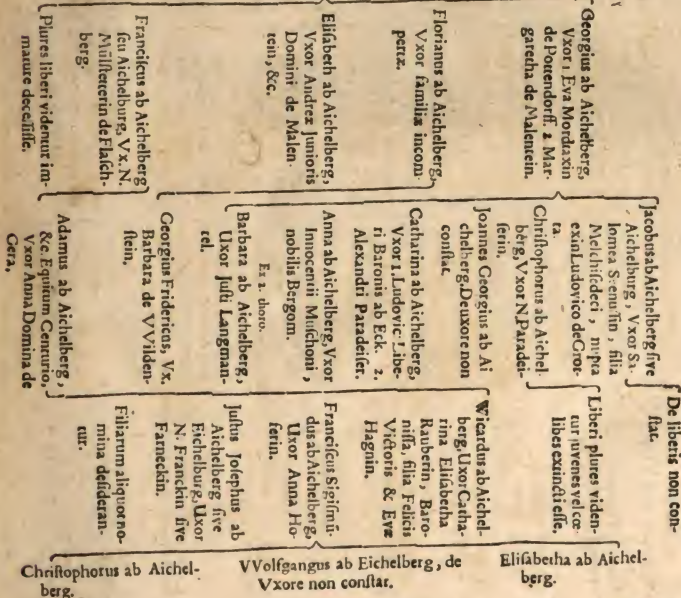 Georgius ab Aichelberg,
Vxor 1 Eva Mordaxin
de Pottendorff. 2 Mar-
garetha de Malentein.
Florianus ab Aichelberg,
Vxor familiæ incom-
pertæ.
Elisabeth ab Aichelberg,
Vxor Andreæ Junioris
Domini de Malen-
tein, &c.
Franciscus ab Aichelberg
seu Aichelburg, Vx. N.
Mülstetterin de Flasch-
berg.
Plures liberi videntur im-
mature decessisse.
Jacobus ab Aichelberg sive
Aichelburg, Vxor Sa-
lomea filia
Melchisedeci, nupta
exin Ludovico de Grot-
ta.
Christophorus ab Aichel-
berg, Vxor N. Paradei-
serin.
Joannes Georgius ab Ai-
chelberg. De uxore non
constat.
Catharina ab Aichelberg,
Vxor 1. Ludovic. Libe-
ri Baronis ab Eck. 2.
Alexandri Paradeiser.
Anna ab Aichelberg, Vxor
Innocentii Muschoni,
nobilis Bergom.
Ex 2. thoro.
Barbara ab Aichelberg,
Uxor Justi Langman-
tel.
Georgius Fridericus, Vx.
Barbara de VVilden-
stein.
Adamus ab Aichelberg,
&c. Equitum Centurio,
Vxor Anna Domina de
Gera,
De liberis non con-
stat.
Liberi plures viden-
tur juvenes vel cœ-
libes exincti esse.
Wicardus ab Aichel-
berg, Uxor Catha-
rina Elisabetha
Rauberin, Baro-
nissa, filia Felicis
Victoris & Evæ
Hagnin.
Franciscus Sigismū-
dus ab Aichelberg,
Uxor Anna Ho-
ferin.
Justus Josephus ab
Aichelberg sive
Eichelburg, Uxor
N. Franckin sive
Farneckin.
Filiarum aliquot no-
mina desideran-
tur.
Christophorus ab Aichel-
berg.
VVolfgangus ab Eichelberg, de
Vxore non constat.
Elisabetha ab Aichel-
berg.